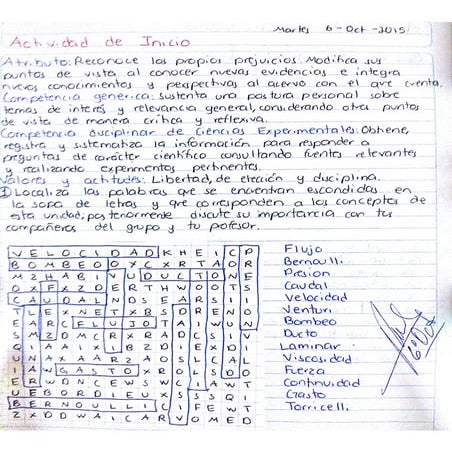 Martes 6-Oct-2015
Actividad de Inicio
Atributo: Reconoce los propios prejuicios. Modifica sus
puntos de vista al conocer nuevas evidencias e integra
nuevos conocimientos y perspectivas al acervo con el que cuenta.
Competencia generica: Sustenta una postura personal sobre
temas de interés y relevancia general, considerando otros puntos
de vista de manera crítica y reflexiva.
Competencia disciplinar de Ciencias Experimentales: Obtiene,
registra y sistematiza la información para responder a
preguntas de carácter científico consultando fuentes relevantes
y realizando experimentos pertinentes.
Valores y actitudes: Libertad, de elección y disciplina.
① Localiza las palabras que se encuentran escondidas en
la sopa de letras y que corresponden a los conceptos de
esta unidad, posteriormente discute su importancia con tus
compañeros del grupo y tu pofesor.
VELOCIDADKHEICP
BOMBEOOXCXRTAOR
MZHABIVUDUCTONE
OXFXZDERTHWOOTS
CAUDALNDSEARSII
TUEXNETXBSDRENO
EARCFLUJOTAIWUN
Flujo
Bernoulli
Presion
Caudal
Velocidad
Venturi
Bombeo
Ducto
Laminar
Viscosidad
Fuerza
Continuidad
Gasto
Torricelli